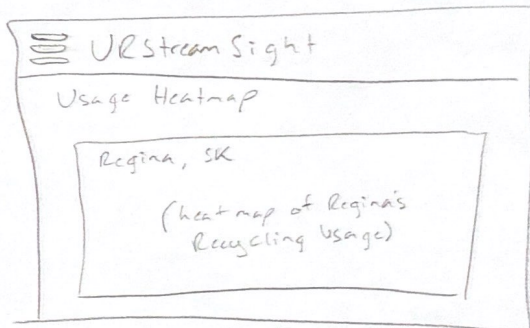 URStream Sight
Usage Heatmap
Regina, SK
(heat map of Regina's
Recycling Usage)